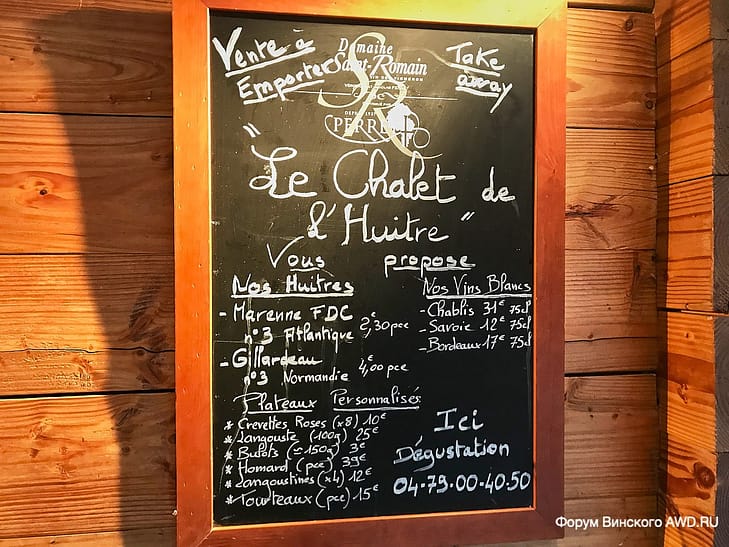 Vente à
Emporter
Domaine
Saint-Romain
Take
away
SR
PERRET
" Le Chalet de
l'Huitre "
Vous propose
Nos Huitres
- Marenne FDC
n°3 Atlantique 2,30€ pce
- Gillardeau
n°3 Normandie 4,00€ pce
Nos Vins Blancs
- Chablis 31€ 75cl
- Savoie 12€ 75cl
- Bordeaux 17€ 75cl
Plateaux Personnalisés
* Crevettes Roses (x8) 10€
* Langouste (100g) 25€
* Bulots (≃150g) 3€
* Homard (pce) 39€
* Langoustines (x4) 12€
* Tourteaux (pce) 15€
Ici
Dégustation
04-79-00-40-50
Форум Винского AWD.RU